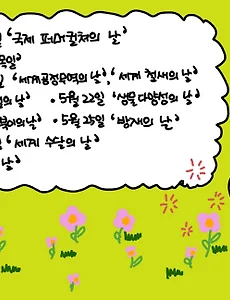 일 '국제 퍼머컬처의 날'
목일
일 '세계공정무역의 날', '세계 철새의 날'
의 날' • 5월 22일 '생물다양성의 날'
북이의날' • 5월 25일 '방재의 날'
일 '세계 수달의 날'
날'